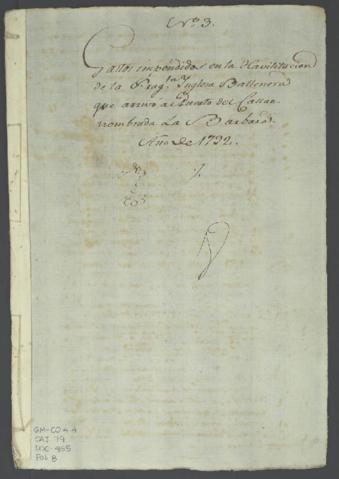 N.º 3.
Gastos impendidos en la Havilitacion
de la Frag.ta Inglesa Ballenera
que arrivó al Puerto del Callao
nombrada La Barbara.
Año de 1792.
GM-CO 44
CAJ 79
DOC-455
FOL 8